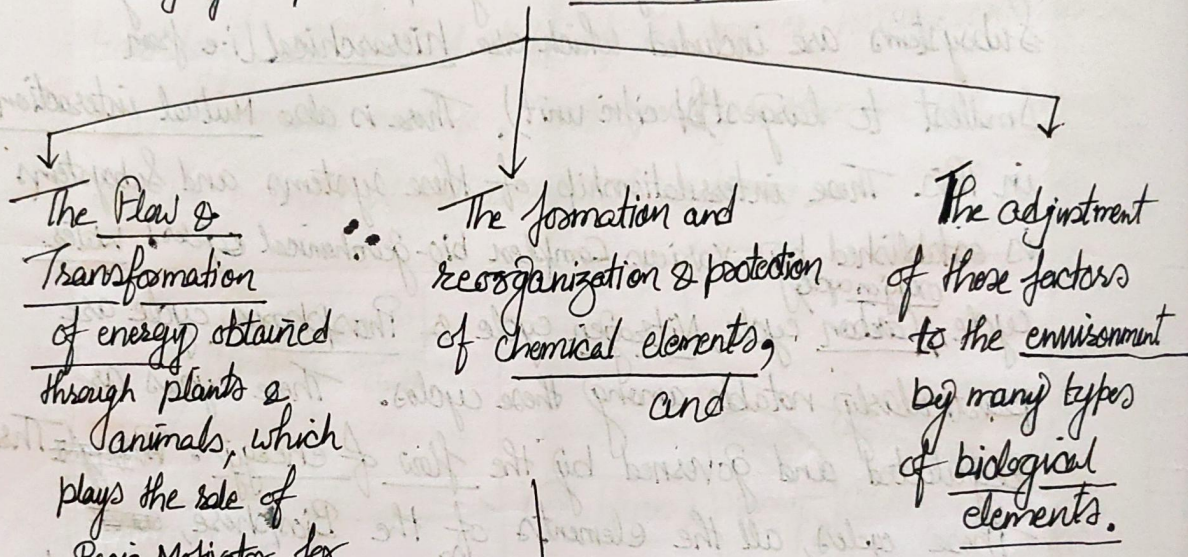 The Flow &
Transformation
of energy obtained
through plants &
animals, which
plays the role of
Basic Motivator for
The formation and
reorganization & protection
of chemical elements,
and
The adjustment
of those factors
to the environment
by many types
of biological
elements.